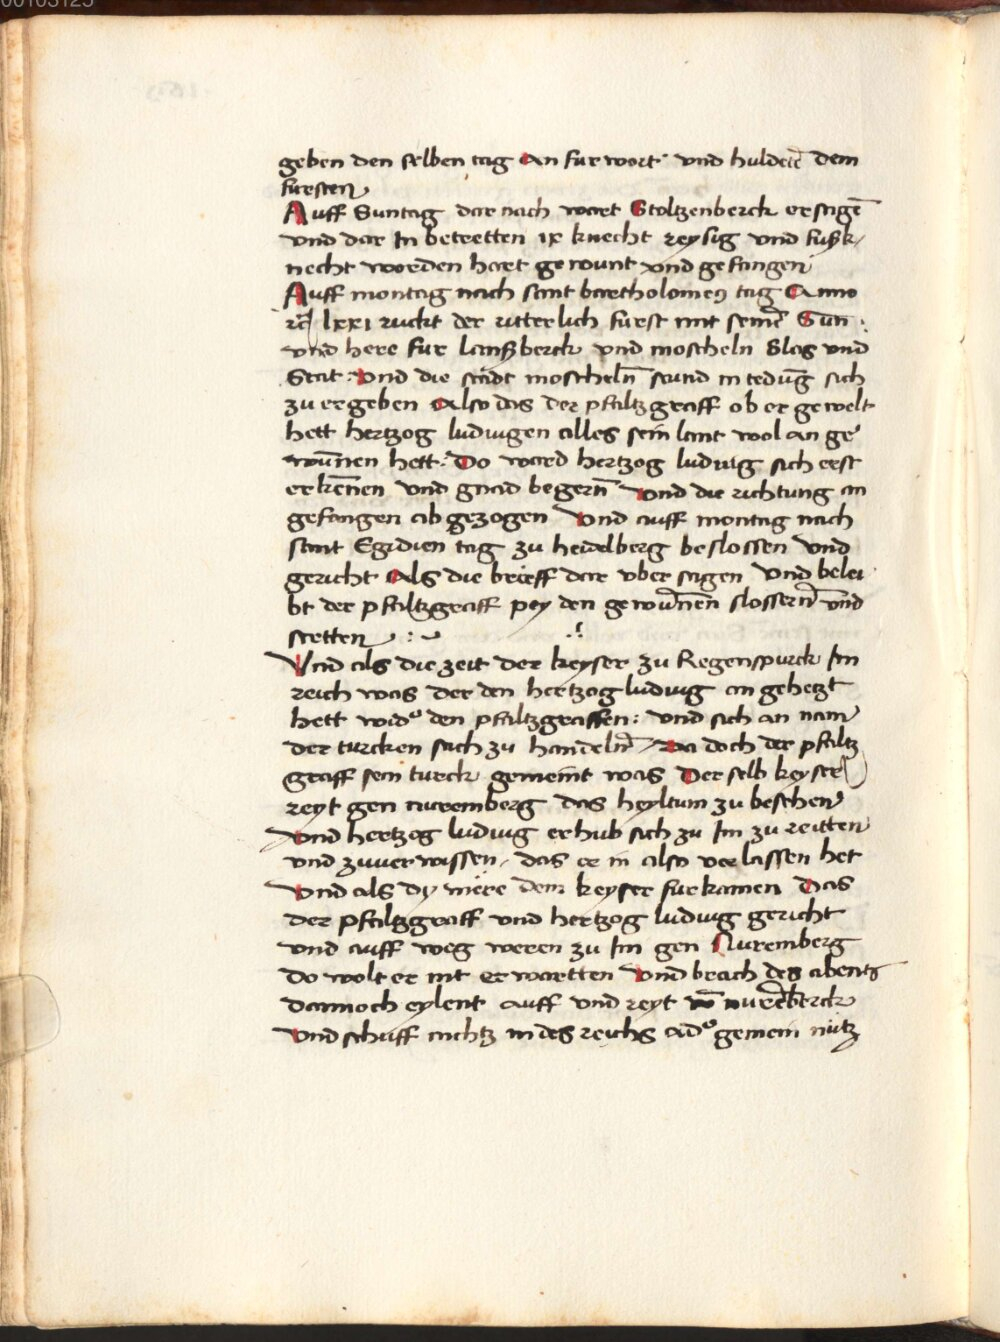 00103125
geben den selben tag An fur wort und hulde͞t dem
fursten
Auff Suntag dar nach wart Stoltzenberck erstige͞
und dar In betretten ix knecht reysig und fußk/
necht worden hart gewunt und gefangen
Auff montag nach sant bartholomeꝰ tag Anno
lxxi ruckt der ritterlich furst mit seine͞ Sun
und here fur lanßberck und moscheln Slos und
Stat: Und die stadt moschelñ stund in tedu͞g sich
zu ergeben Also das der pfaltzgraff ob er gewelt
hett hertzog ludwigen alles sein lant wol an ge
wu͞nen hett: Do ward hertzog ludwig sich erst
erke͞nen und gnad begerñ Und die richtung an
gefangen ab gezogen Und auff montag nach
sant Egidien tag zu heidelberg beslossen und
gericht Als die brieff dar uber sagen Und belei
bt der pfaltzgraff pey den gewu͞nen slosserñ und
stetten
Und als die zeit der keyser zu Regenspurck Im
reich was der den hertzog ludwig an gehetzt
hett wid᷒ den pfaltzgraffen: und sich an nam
der turcken sach zu handelñ Wa doch der pfaltz
graff sein turck gemeint was Der selb keyser
reyt gen nuremberg das heyltum zu besehen
Und hertzog ludwig erhub sich zu Im zu reitten
und zuuerwissen, das er in also verlassen het
Und als dy mere dem keyser furkamen Das
der pfaltzgraff und hertzog ludwig gericht
und auff weg weren zu Im gen Nuremberg
do wolt er nit erwartten Und brach des abents
dannoch eylent auff und reyt vo͞ nure͞berck
Und schuff nichtz in des reichs ad᷒ gemein nutz